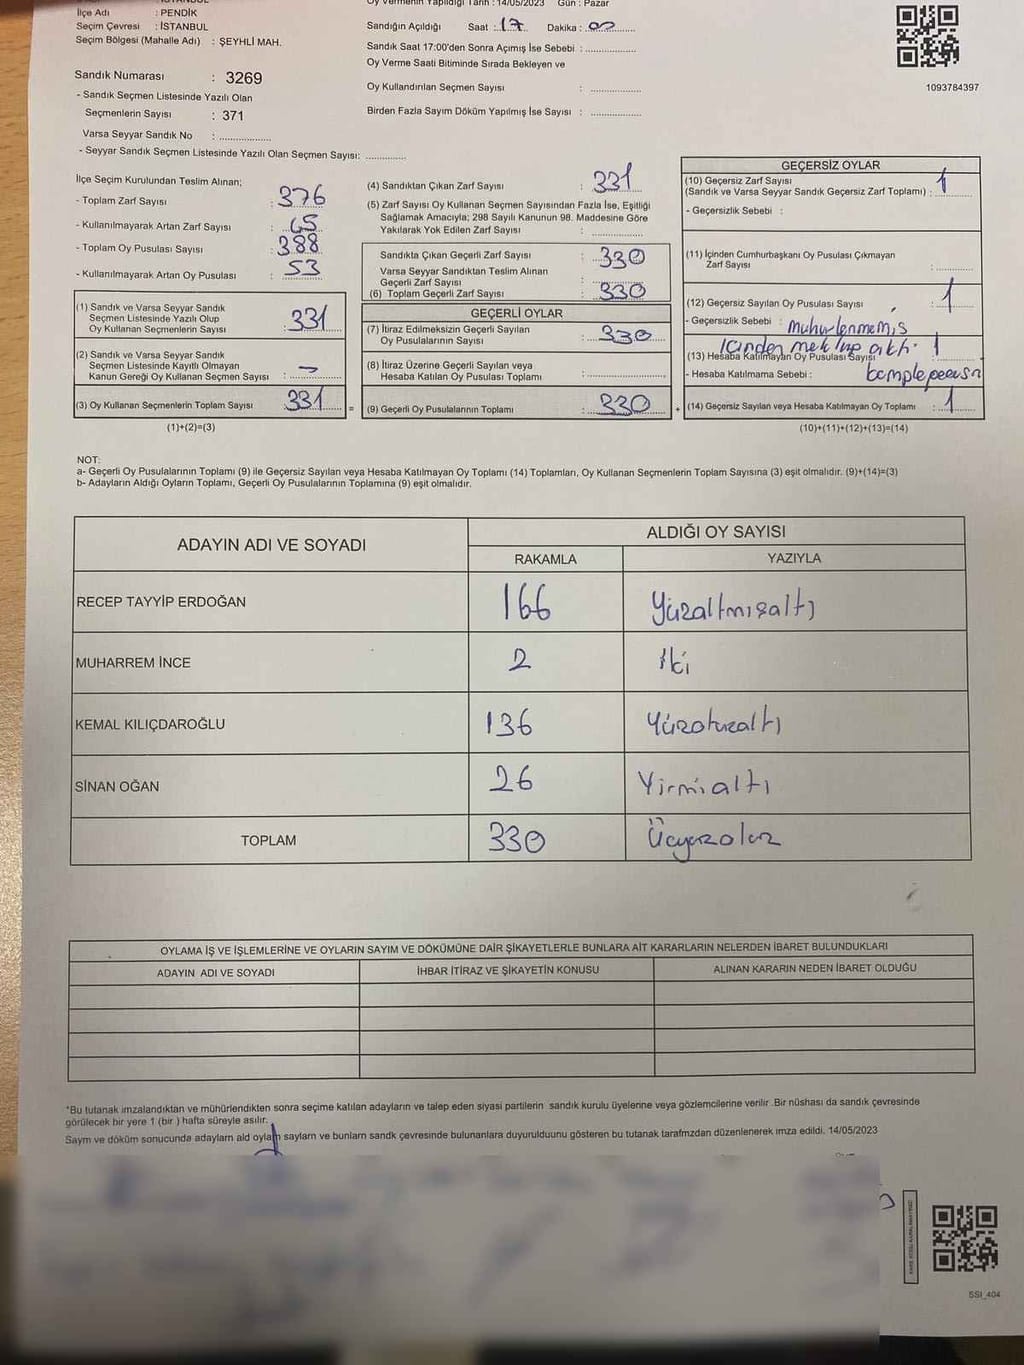 İlçe Adı : PENDİK
Seçim Çevresi : İSTANBUL
Seçim Bölgesi (Mahalle Adı) : ŞEYHLİ MAH.
Sandık Numarası : 3269
- Sandık Seçmen Listesinde Yazılı Olan
Seçmenlerin Sayısı : 371
Varsa Seyyar Sandık No :
- Seyyar Sandık Seçmen Listesinde Yazılı Olan Seçmen Sayısı:
Oy Vermenin Yapıldığı Tarih : 14/05/2023 Gün : Pazar
Sandığın Açıldığı Saat : 17 Dakika : 00
Sandık Saat 17:00'den Sonra Açımış İse Sebebi :
Oy Verme Saati Bitiminde Sırada Bekleyen ve
Oy Kullandırılan Seçmen Sayısı :
Birden Fazla Sayım Döküm Yapılmış İse Sayısı :
1093784397
İlçe Seçim Kurulundan Teslim Alınan;
- Toplam Zarf Sayısı : 376
- Kullanılmayarak Artan Zarf Sayısı : 45
- Toplam Oy Pusulası Sayısı : 388
- Kullanılmayarak Artan Oy Pusulası : 53
(1) Sandık ve Varsa Seyyar Sandık
Seçmen Listesinde Yazılı Olup
Oy Kullanan Seçmenlerin Sayısı : 331
(2) Sandık ve Varsa Seyyar Sandık
Seçmen Listesinde Kayıtlı Olmayan
Kanun Gereği Oy Kullanan Seçmen Sayısı :
(3) Oy Kullanan Seçmenlerin Toplam Sayısı : 331 =
(1)+(2)=(3)
(4) Sandıktan Çıkan Zarf Sayısı : 331
(5) Zarf Sayısı Oy Kullanan Seçmen Sayısından Fazla İse, Eşitliği
Sağlamak Amacıyla; 298 Sayılı Kanunun 98. Maddesine Göre
Yakılarak Yok Edilen Zarf Sayısı :
Sandıkta Çıkan Geçerli Zarf Sayısı : 330
Varsa Seyyar Sandıktan Teslim Alınan
Geçerli Zarf Sayısı :
(6) Toplam Geçerli Zarf Sayısı : 330
GEÇERLİ OYLAR
(7) İtiraz Edilmeksizin Geçerli Sayılan
Oy Pusulalarının Sayısı : 330
(8) İtiraz Üzerine Geçerli Sayılan veya
Hesaba Katılan Oy Pusulası Toplamı :
(9) Geçerli Oy Pusulalarının Toplamı : 330 +
GEÇERSİZ OYLAR
(10) Geçersiz Zarf Sayısı
(Sandık ve Varsa Seyyar Sandık Geçersiz Zarf Toplamı) : 1
- Geçersizlik Sebebi :
(11) İçinden Cumhurbaşkanı Oy Pusulası Çıkmayan
Zarf Sayısı :
(12) Geçersiz Sayılan Oy Pusulası Sayısı : 1
- Geçersizlik Sebebi : Mühürlenmemiş
İçinden mektup çıktı. 1
(13) Hesaba Katılmayan Oy Pusulası Sayısı
- Hesaba Katılmama Sebebi :
(14) Geçersiz Sayılan veya Hesaba Katılmayan Oy Toplamı : 1
(10)+(11)+(12)+(13)=(14)
NOT:
a- Geçerli Oy Pusulalarının Toplamı (9) ile Geçersiz Sayılan veya Hesaba Katılmayan Oy Toplamı (14) Toplamları, Oy Kullanan Seçmenlerin Toplam Sayısına (3) eşit olmalıdır. (9)+(14)=(3)
b- Adayların Aldığı Oyların Toplamı, Geçerli Oy Pusulalarının Toplamına (9) eşit olmalıdır.
ADAYIN ADI VE SOYADI
ALDIĞI OY SAYISI
RAKAMLA YAZIYLA
RECEP TAYYİP ERDOĞAN 166 Yüzaltmışaltı
MUHARREM İNCE 2 İki
KEMAL KILIÇDAROĞLU 136 Yüzotuzaltı
SİNAN OĞAN 26 Yirmialtı
TOPLAM 330 Üçyüzotuz
OYLAMA İŞ VE İŞLEMLERİNE VE OYLARIN SAYIM VE DÖKÜMÜNE DAİR ŞİKAYETLERLE BUNLARA AİT KARARLARIN NELERDEN İBARET BULUNDUKLARI
ADAYIN ADI VE SOYADI İHBAR İTİRAZ VE ŞİKAYETİN KONUSU ALINAN KARARIN NEDEN İBARET OLDUĞU
*Bu tutanak imzalandıktan ve mühürlendikten sonra seçime katılan adayların ve talep eden siyasi partilerin sandık kurulu üyelerine veya gözlemcilerine verilir .Bir nüshası da sandık çevresinde
görülecek bir yere 1 (bir ) hafta süreyle asılır.
Saym ve döküm sonucunda adaylarn ald oylarn saylarn ve bunlarn sandk çevresinde bulunanlara duyurulduunu gösteren bu tutanak tarafmzdan düzenlenerek imza edildi. 14/05/2023
SSI_404